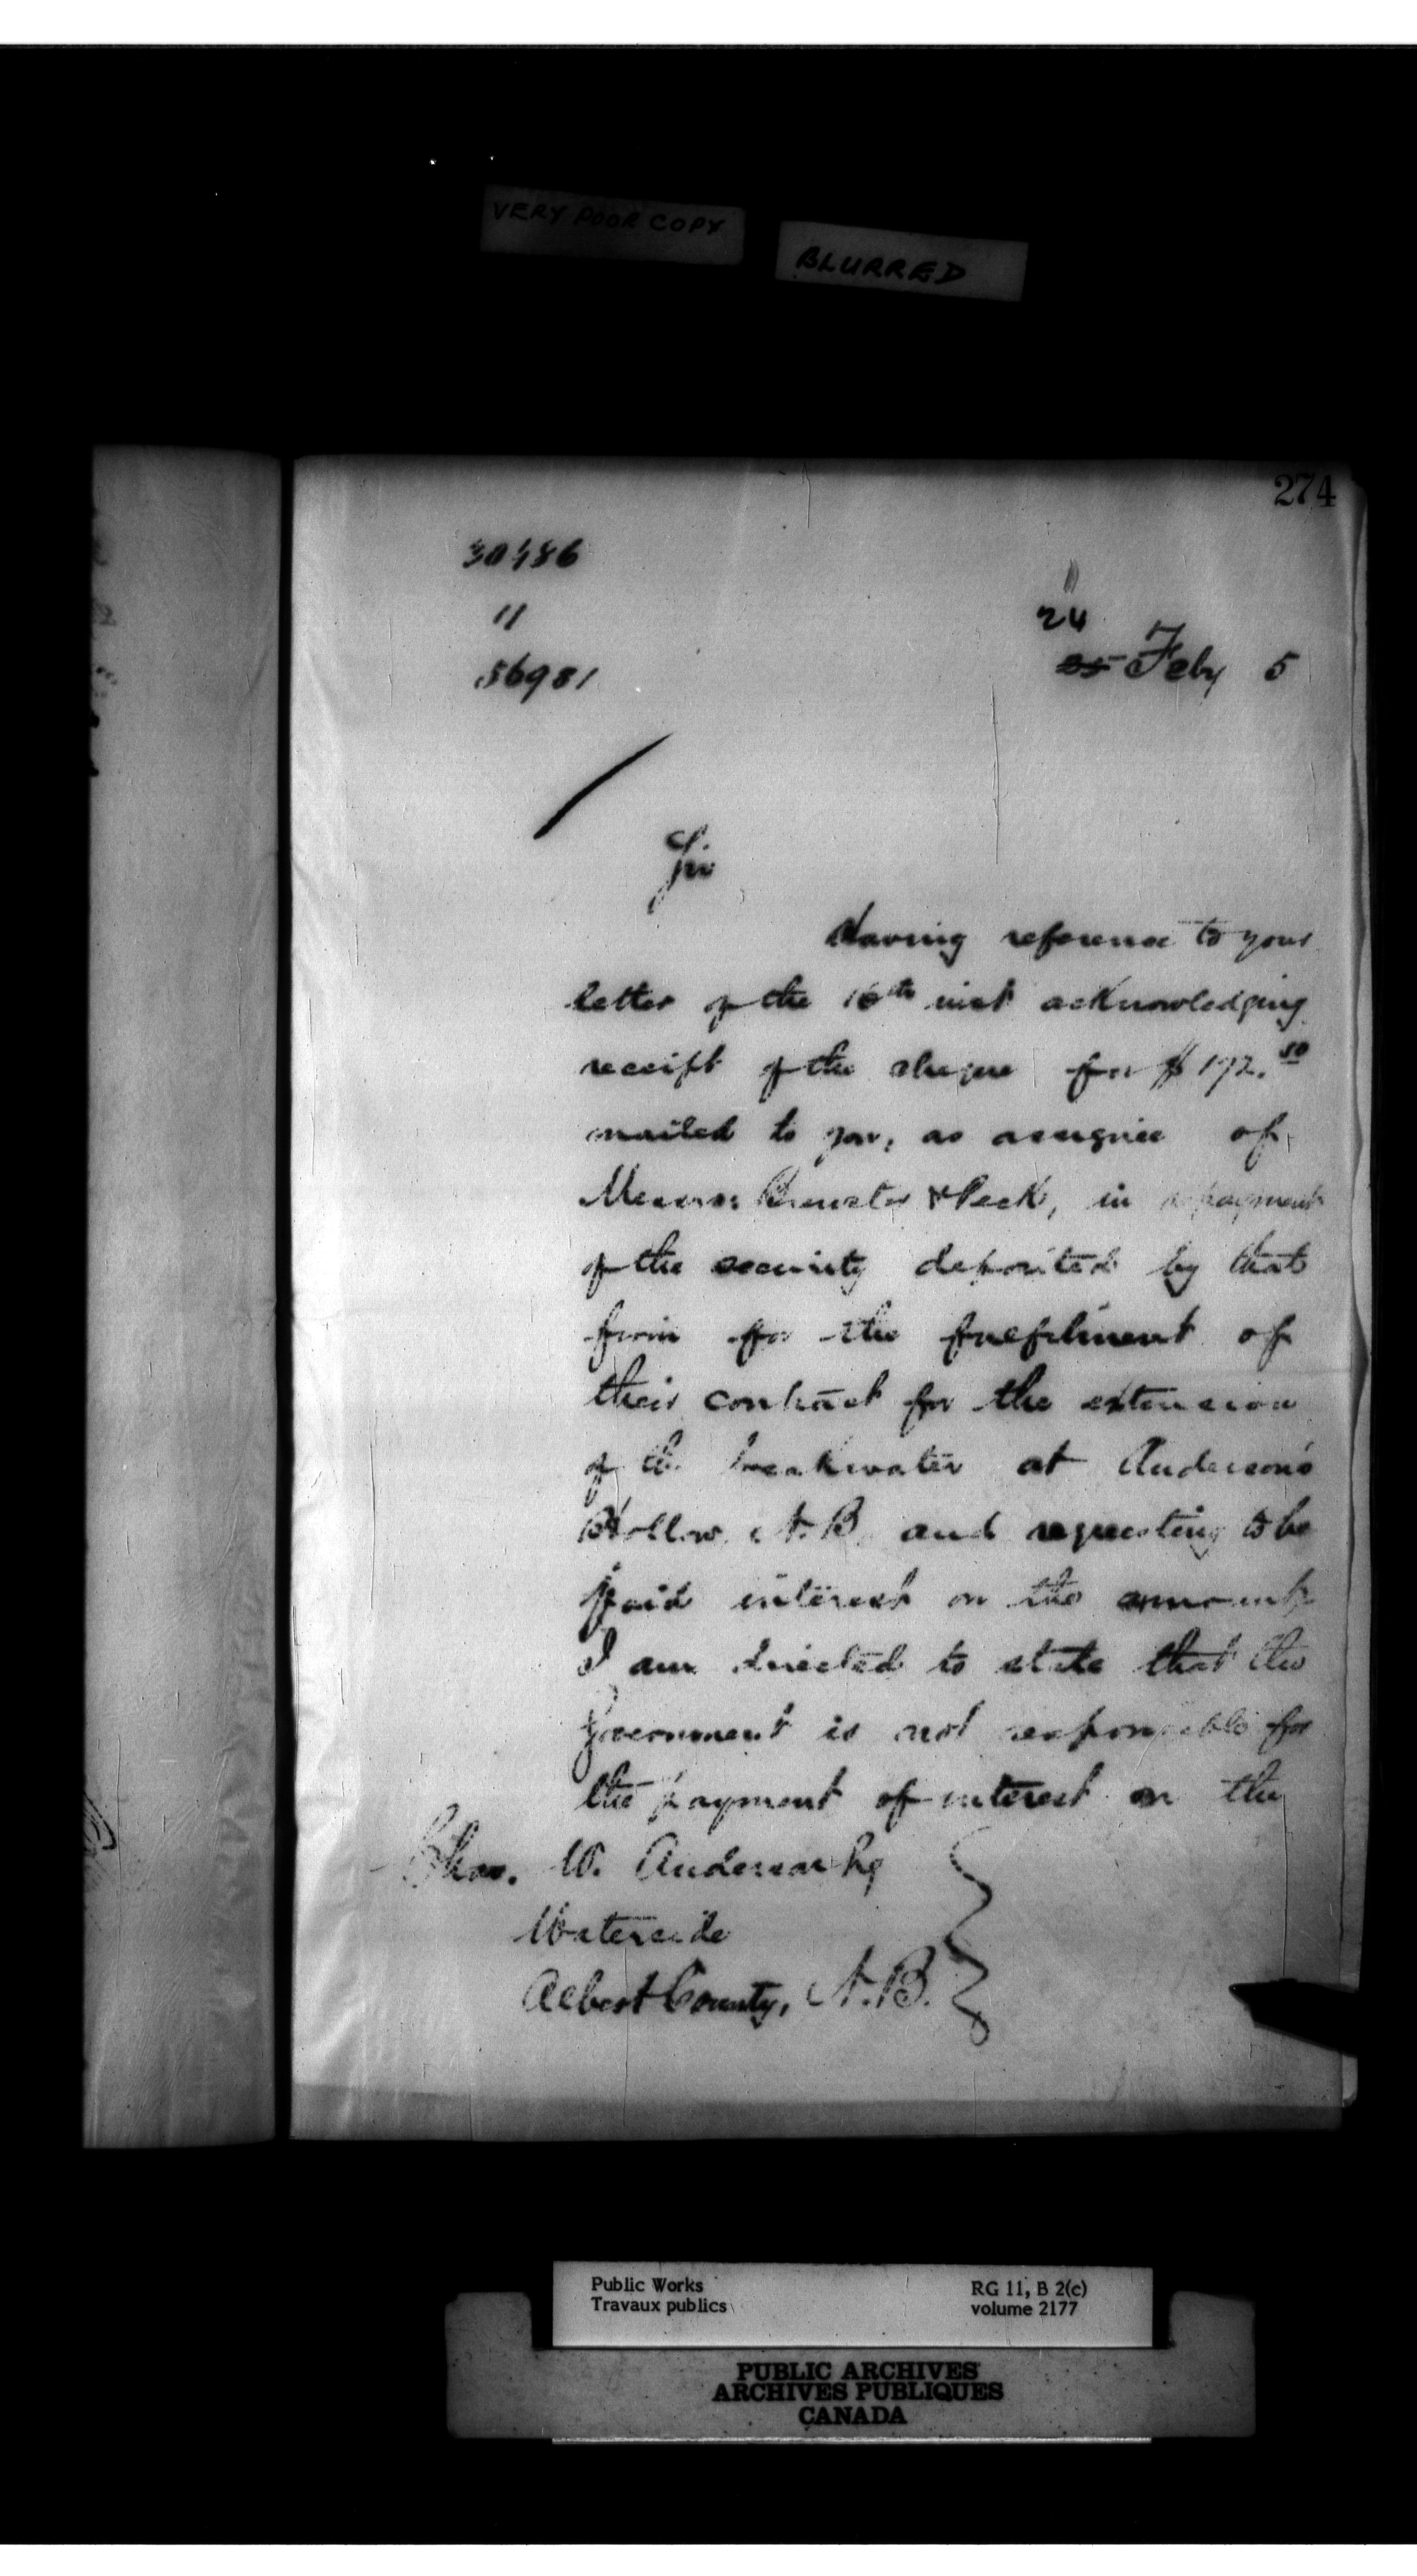 VERY POOR COPY
BLURRED
274
30486
11
56981
24
25 Feby 5
Sir
Having reference to your
letter of the 16th inst acknowledging
receipt of the cheque for $172.50
mailed to you, as assignee of
Messrs Brewster & Peck, in repayment
of the security deposited by that
firm for the fulfilment of
their contract for the extension
of the breakwater at Anderson's
Hollow, N.B. and requesting to be
paid interest on the amount
I am directed to state that the
Government is not responsible for
the payment of interest on the
Chas. W. Anderson Esq
Waterside
Albert County, N.B.
Public Works
Travaux publics
RG 11, B 2(c)
volume 2177
PUBLIC ARCHIVES
ARCHIVES PUBLIQUES
CANADA